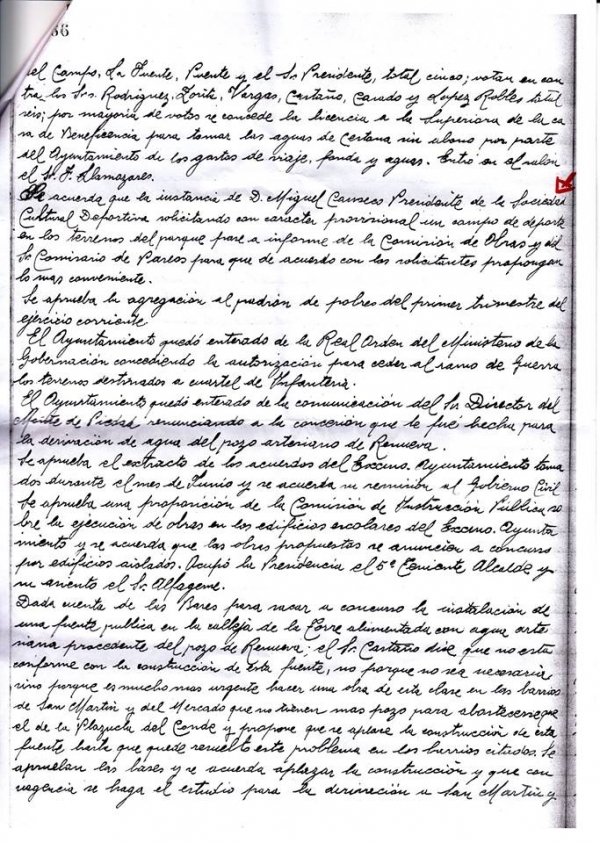 66
del Campo, La Fuente, Puente y el Sr. Presidente, total cinco; votan en con
tra los Srs. Rodriguez, Zorita, Vargas, Castaño, Casado y Lopez Robles total
seis; por mayoria de votos se concede la licencia a la Superiora de la ca
sa de Beneficencia para tomar las aguas de Cestona sin abono por parte
del Ayuntamiento de los gastos de viaje, fonda y aguas. Entró en el salon
el Sr. F. Llamazares.
Se acuerda que la instancia de D. Miguel Canseco Presidente de la Sociedad
Cultural Deportiva solicitando con caracter provisional un campo de deporte
en los terrenos del parque pase a informe de la Comisión de Obras y del
Sr. Comisario de Paseos para que de acuerdo con los solicitantes propongan
lo mas conveniente.
Se aprueba la agregación al padrón de pobres del primer trimestre del
ejercicio corriente
El Ayuntamiento quedó enterado de la Real Orden del Ministerio de la
Gobernación concediendo la autorización para ceder al ramo de Guerra
los terrenos destinados a cuartel de Infanteria.
El Ayuntamiento quedó enterado de la comunicación del Sr. Director del
Monte de Piedad renunciando a la concesión que le fué hecha para
la derivación de agua del pozo artesiano de Renueva.
Se aprueba el extracto de los acuerdos del Excmo. Ayuntamiento toma
dos durante el mes de Junio y se acuerda su remisión al Gobierno Civil
Se aprueba una proposición de la Comisión de Instrucción Pública so
bre la ejecución de obras en los edificios escolares del Excmo. Ayunta
miento y se acuerda que las obras propuestas se anuncien a concurso
por edificios aislados. Ocupó la Presidencia el 5º Teniente Alcalde y
su asiento el Sr. Alfageme.
Dada cuenta de las Bases para sacar a concurso la instalación de
una fuente publica en la calleja de la Torre alimentada con agua arte
siana procedente del pozo de Renueva; el Sr. Castaño dice que no está
conforme con la construcción de esta fuente, no porque no sea necesaria
sino porque es mucho mas urgente hacer una obra de esta clase en los barrios
de San Martin y del Mercado que no tienen mas pozo para abastecerse que
el de la Plazuela del Conde y propone que se aplace la construcción de esta
fuente hasta que quede resuelto este problema en los barrios citados. Se
aprueban las bases y se acuerda aplazar la construcción y que con
urgencia se haga el estudio para la derivación a San Martin y